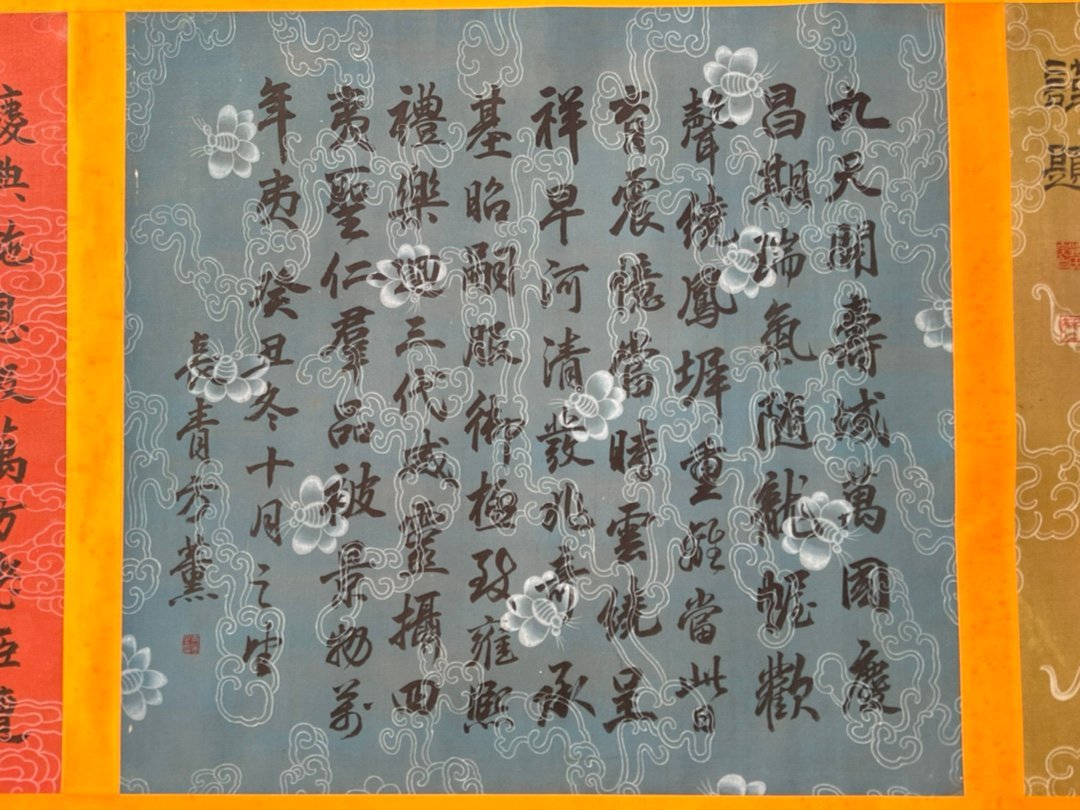 謹題
九天開壽域萬國慶
昌期瑞氣隨龍幄歡
聲繞鳳墀重離當此日
育震憶當時雲繞呈
祥早河清發兆奇承
基昭嗣服御極致雍熙
禮樂三代威靈攝四
夷聖仁羣品被景物萬
年夷 癸丑冬十月之吉
長青李薰
慶典施恩萬方老臣